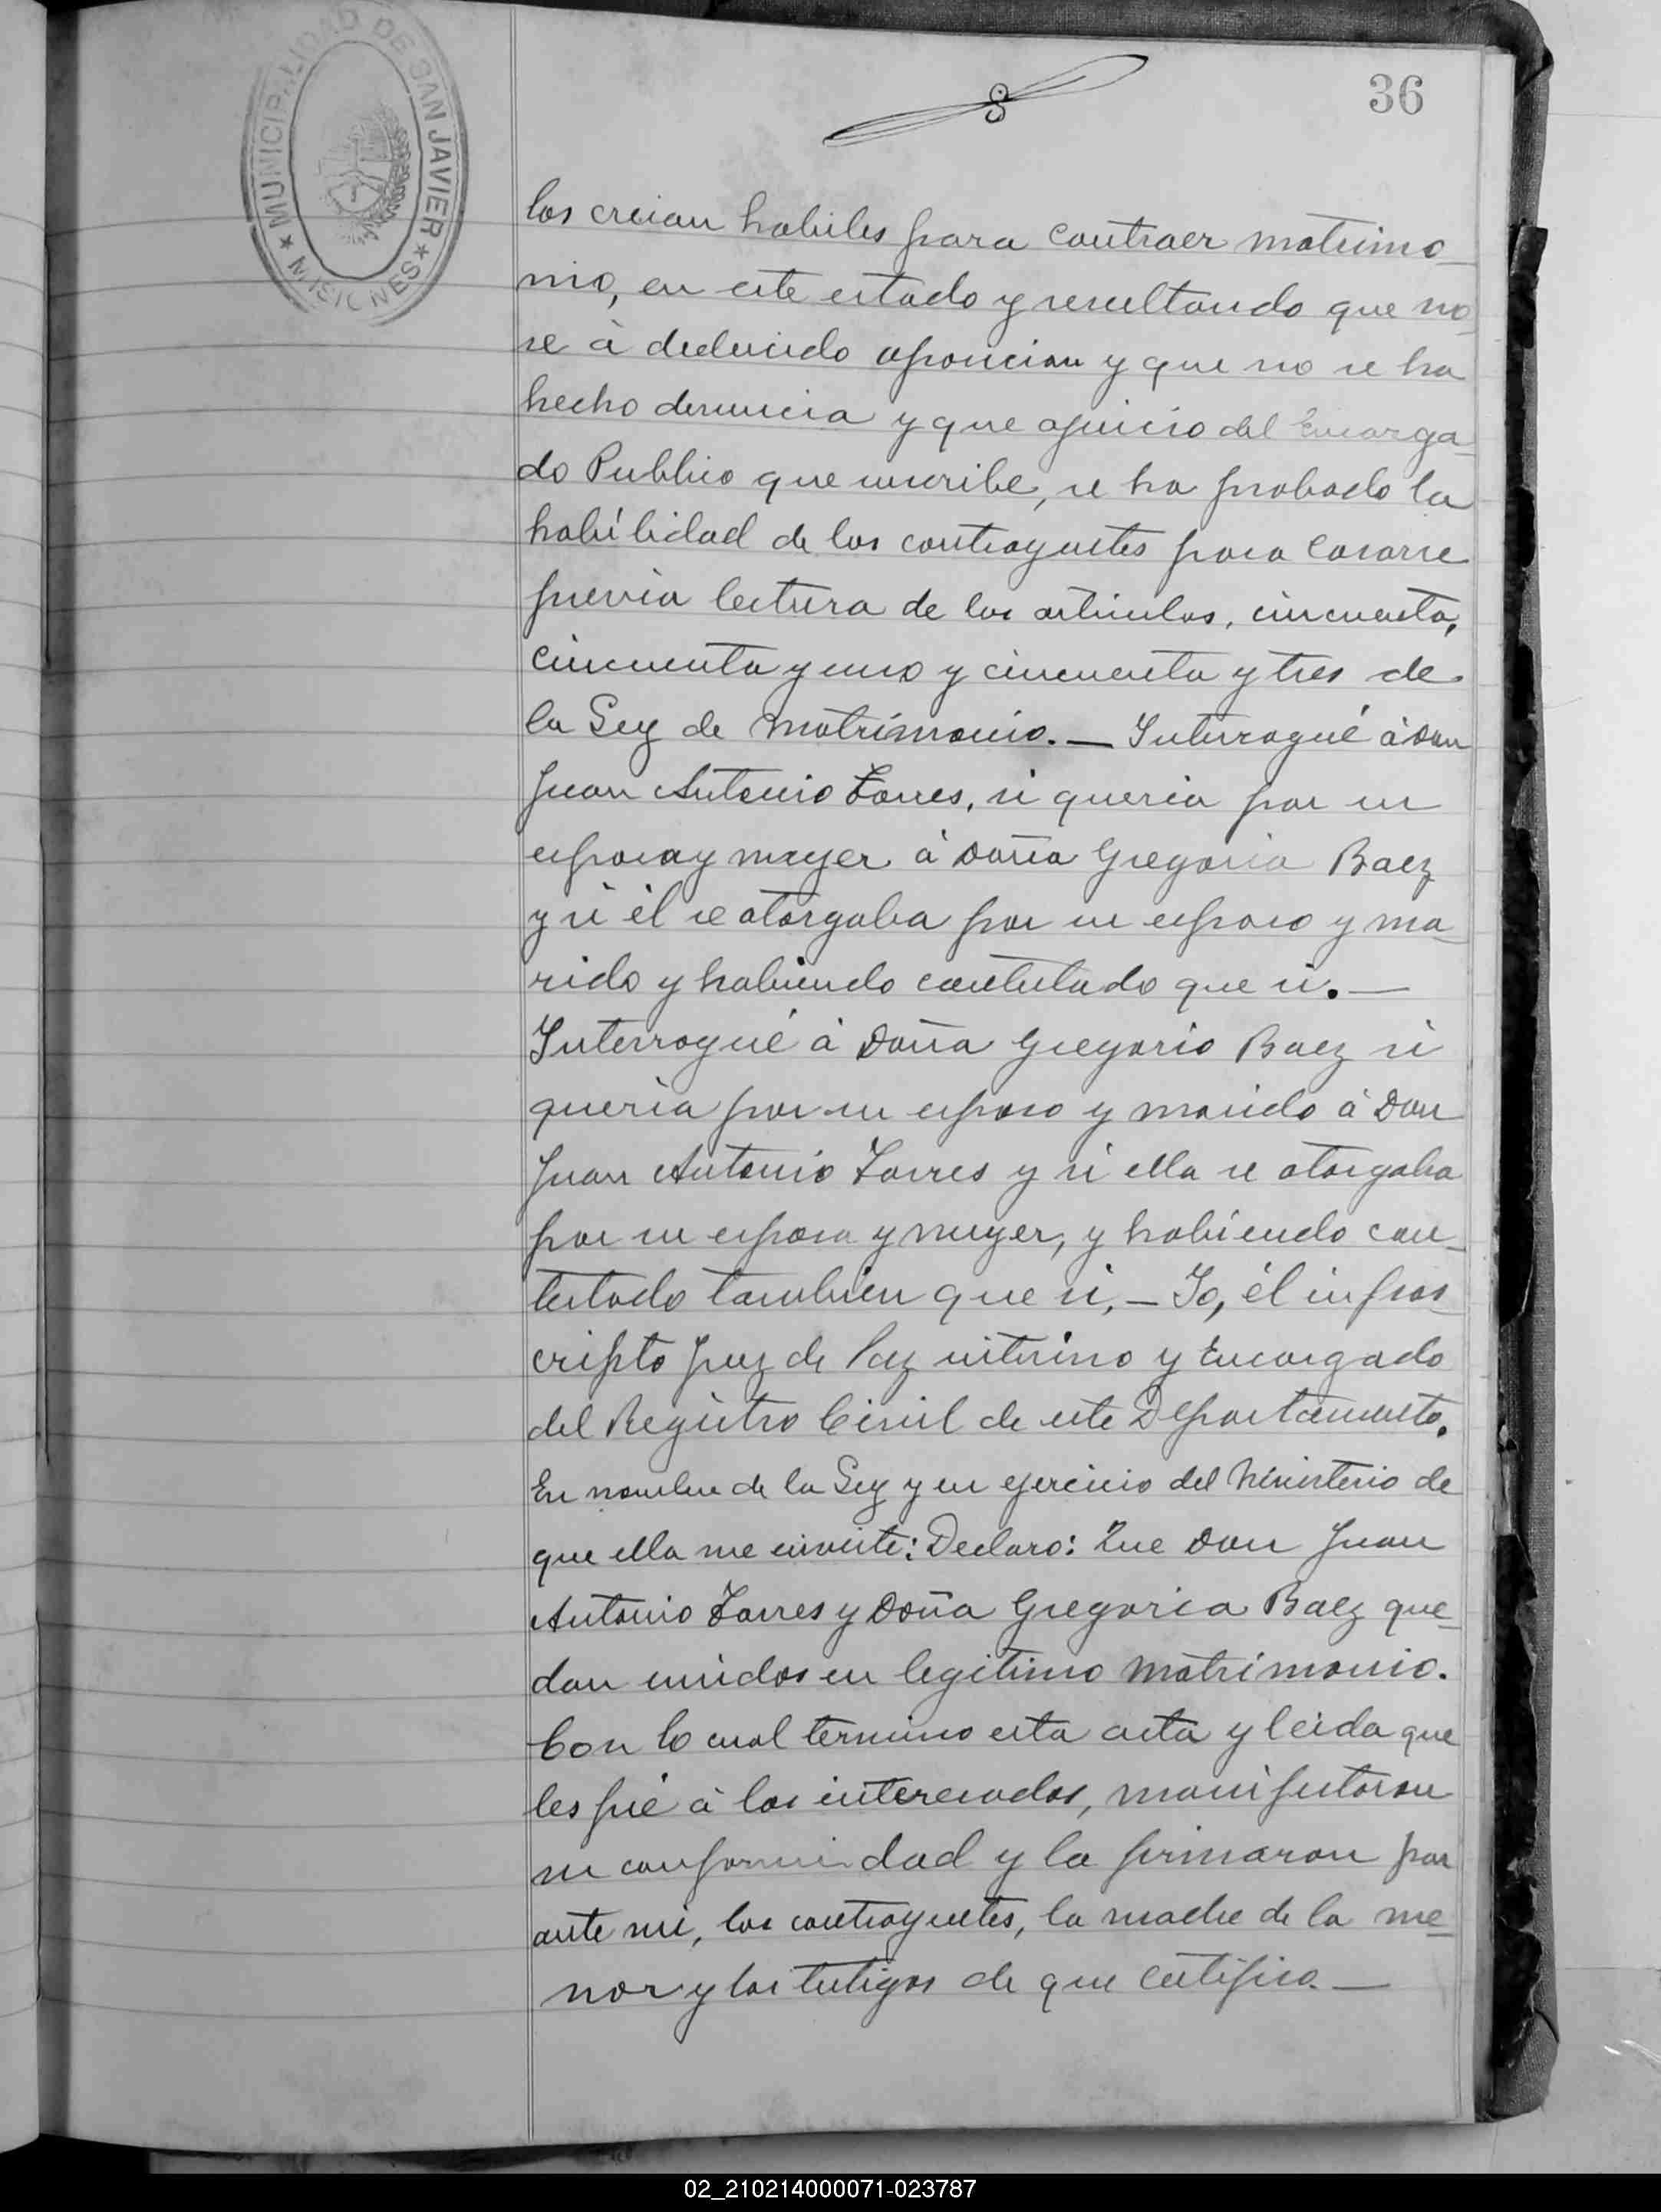 MUNICIPALIDAD DE SAN JAVIER
★ MISIONES ★
8
36
los creian habiles para contraer matrimo-
nio, en este estado y resultando que no
se à deducido oposicion y que no se ha
hecho denuncia y que ajuicio del Encarga-
do Publico que suscribe, se ha probado la
habilidad de los contrayentes para casarse
previa lectura de los articulos, cincuenta,
cincuenta y uno y cincuenta y tres de
la Ley de Matrimonio. — Interrogué à Don
Juan Antonio Torres, si queria por su
esposa y muger à Doña Gregoria Baez
y si él se otorgaba por su esposo y ma-
rido y habiendo contestado que si. —
Interrogué à Doña Gregoria Baez si
queria por su esposo y marido à Don
Juan Antonio Torres y si ella se otorgaba
por su esposa y muger, y habiendo con-
testado tambien que si, — Yo, él infras-
cripto Juez de Paz interino y Encargado
del Registro Civil de este Departamento.
En nombre de la Ley y en ejercicio del Ministerio de
que ella me inviste: Declaro: Que Don Juan
Antonio Torres y Doña Gregoria Baez que-
dan unidos en legitimo Matrimonio.
Con lo cual termino esta acta y leida que
les fué à los interesados, manifestaron
su conformidad y la firmaron por
ante mi, los contrayentes, la madre de la me-
nor y los testigos de que certifico. —
02_210214000071-023787